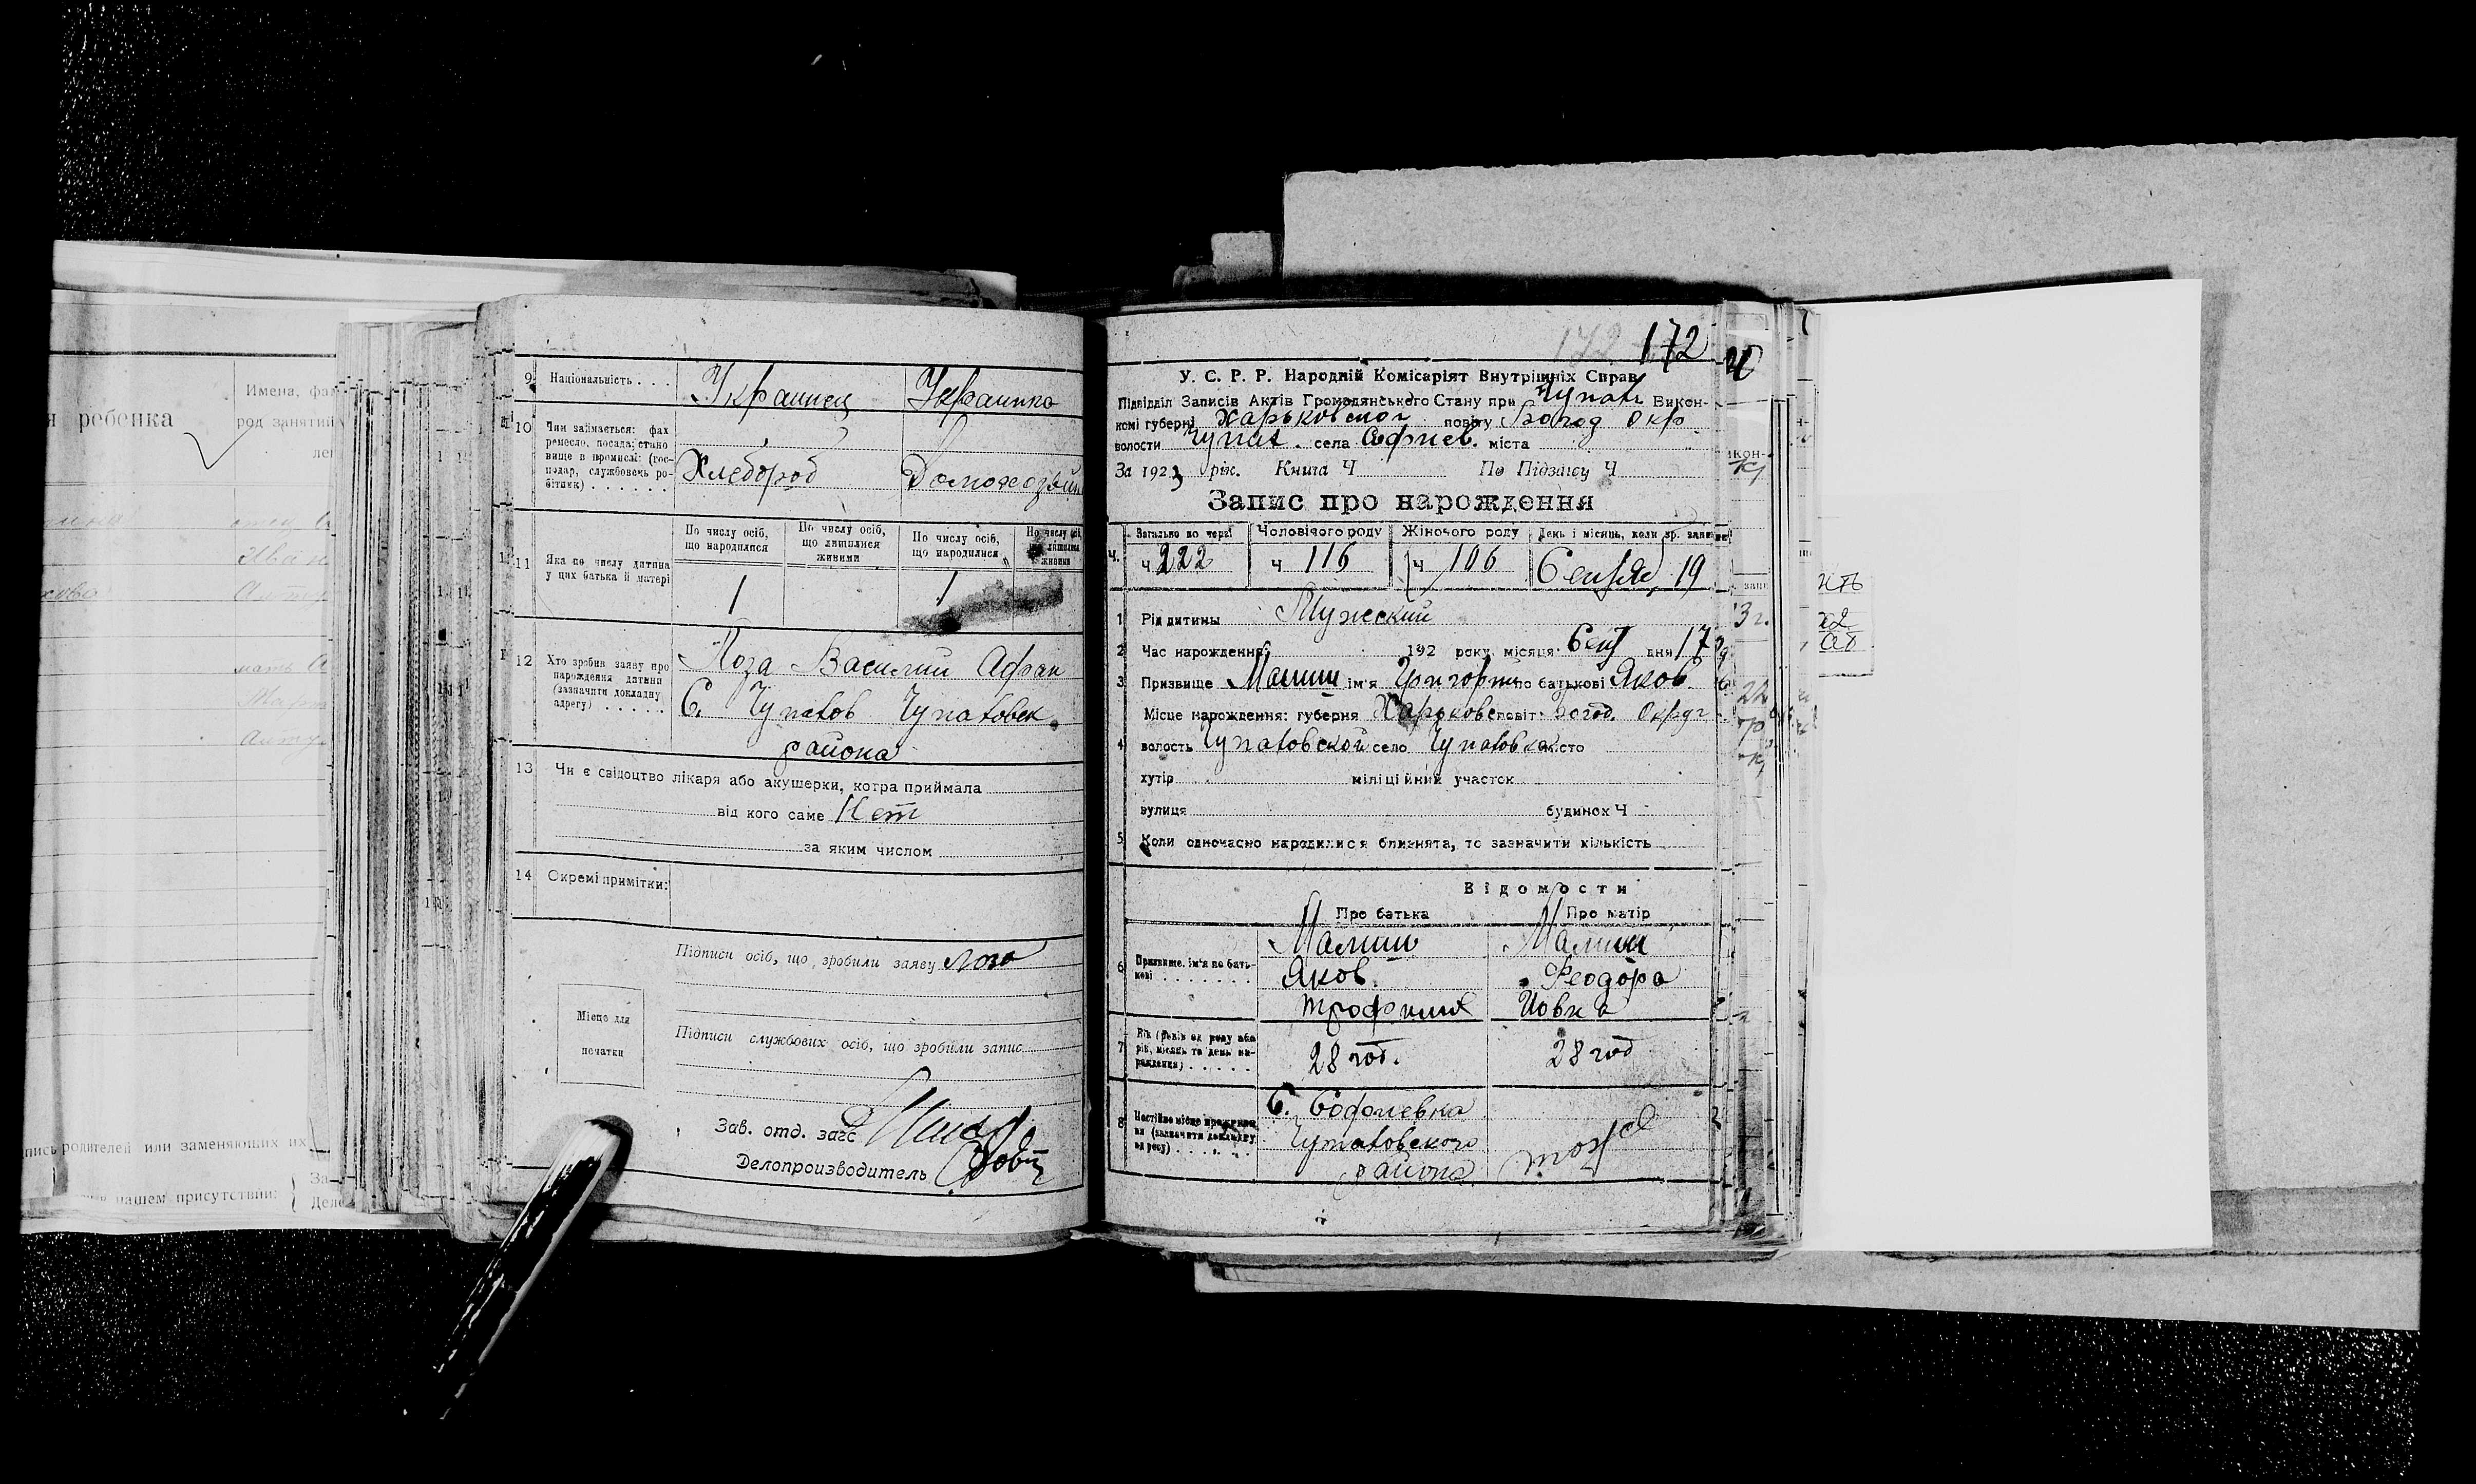 я ребенка
Имена, фа
род занятий
9 Національність . . . Украинец Украинка
10 Чим займається: фах
ремесло, посада; стано
вище в промислі: (гос-
подар, службовець ро-
бітник) . . . . . . Хлебороб Домохозяй
11 Яка по числу дитина
у цих батька й матері
По числу осіб,
що народилися
По числу осіб,
що лишилися
живими
По числу осіб,
що народилися
1 1
12 Хто зробив заяву про
нарождення дитини
(зазначити докладну
адресу) . . . . .
Лоза Василий Афан
С. Чупахов Чупаховск.
района
13 Чи є свідоцтво лікаря або акушерки, котра приймала
від кого саме Нет
за яким числом
14 Окремі примітки:
Підписи осіб, що зробили заяву Лоза
Місце для
печатки
Підписи службових осіб, що зробили запис
Зав. отд. загс
Делопроизводитель
пись родителей или заменяющих их
в нашем присутствии:
172 172
У. С. Р. Р. Народній Комісаріят Внутрішніх Справ
Підвідділ Записів Актів Громадянського Стану при Чупах Викон-
комі губерні Харьковског повіту Богод Окр
волости Чупах. села Софиев. міста
За 1923 рік. Книга Ч По Підзапсу Ч
Запис про нарождення
Загально по черзі Чоловічого роду Жіночого роду День і місяць, коли зр. запис
ч 222 ч 116 ч 106 Сентяб 19
1 Рід дитини Мужеский
2 Час нарождення 192 року місяця Сент дня 17
3 Призвище Малиш ім'я Григорий по батькові Яков
Місце нарождення: губерня Харьковс повіт Богод. Округ
4 волость Чупаховской село Чупаховка місто
хутір міліційний участок
вулиця будинок Ч
5 Коли одночасно народилися близнята, то зазначити кількість
Відомости
Про батька Про матір
6 Призвище, ім'я по бать-
кові . . . . . . .
Малиш Малиш
Яков. Феодора
Трофимов Иовна
7 Вік (років од роду або
рік, місяць та день на-
рождення) . . . . . 28 год. 28 год
8 Постійне місце проживан
ня (зазначити докладну
адресу) . . . . . .
С. Софиевка
Чупаховского
района тоже